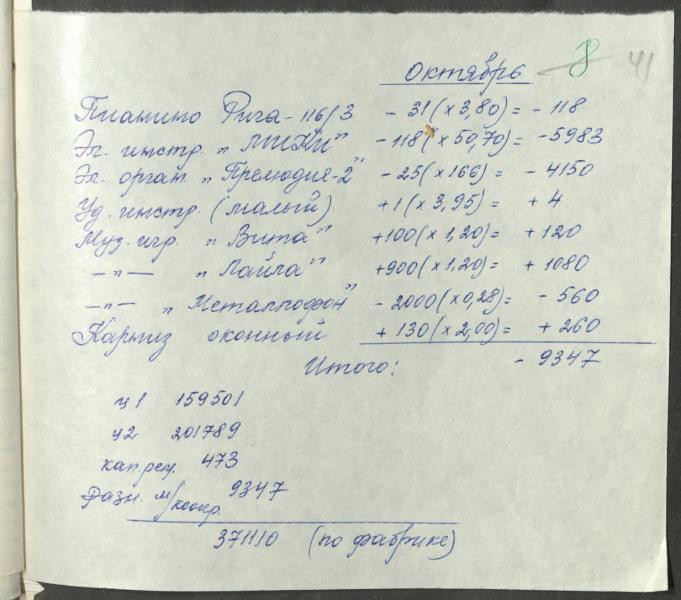 8 41
Октябрь
Пианино Рига-116/3 - 31(×3,80)= - 118
Эл. инстр. „МИКИ" -118(×50,70)= -5983
Эл. орган „Прелюдия-2" -25(×166)= - 4150
Уд. инстр. (малый) +1(×3,95)= + 4
Муз. игр. „Вита" +100(×1,20)= + 120
—"— „Лайла" +900(×1,20)= + 1080
—"— „Металлофон" - 2000(×0,28)= - 560
Карниз оконный + 130(×2,00)= + 260
Итого: - 9347
ц1 159501
ц2 201789
кап.рем. 473
Разн. м/коопр. 9347
371110 (по фабрике)